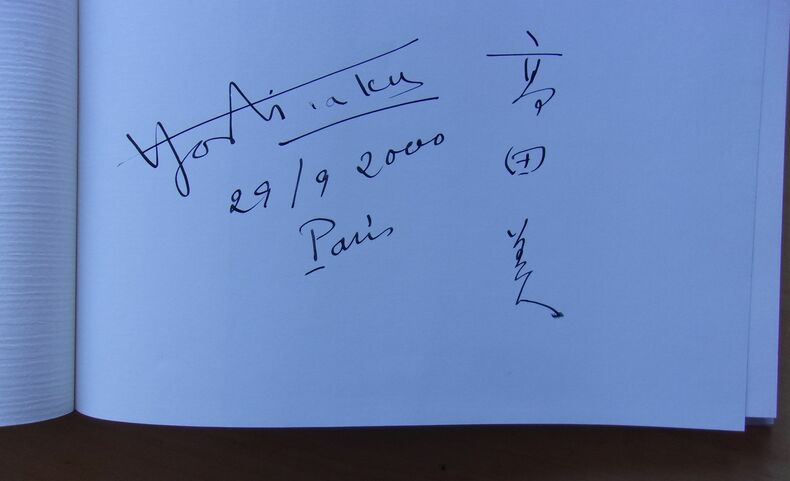 Yoshi Takata
29/9 2000
Paris
高田美